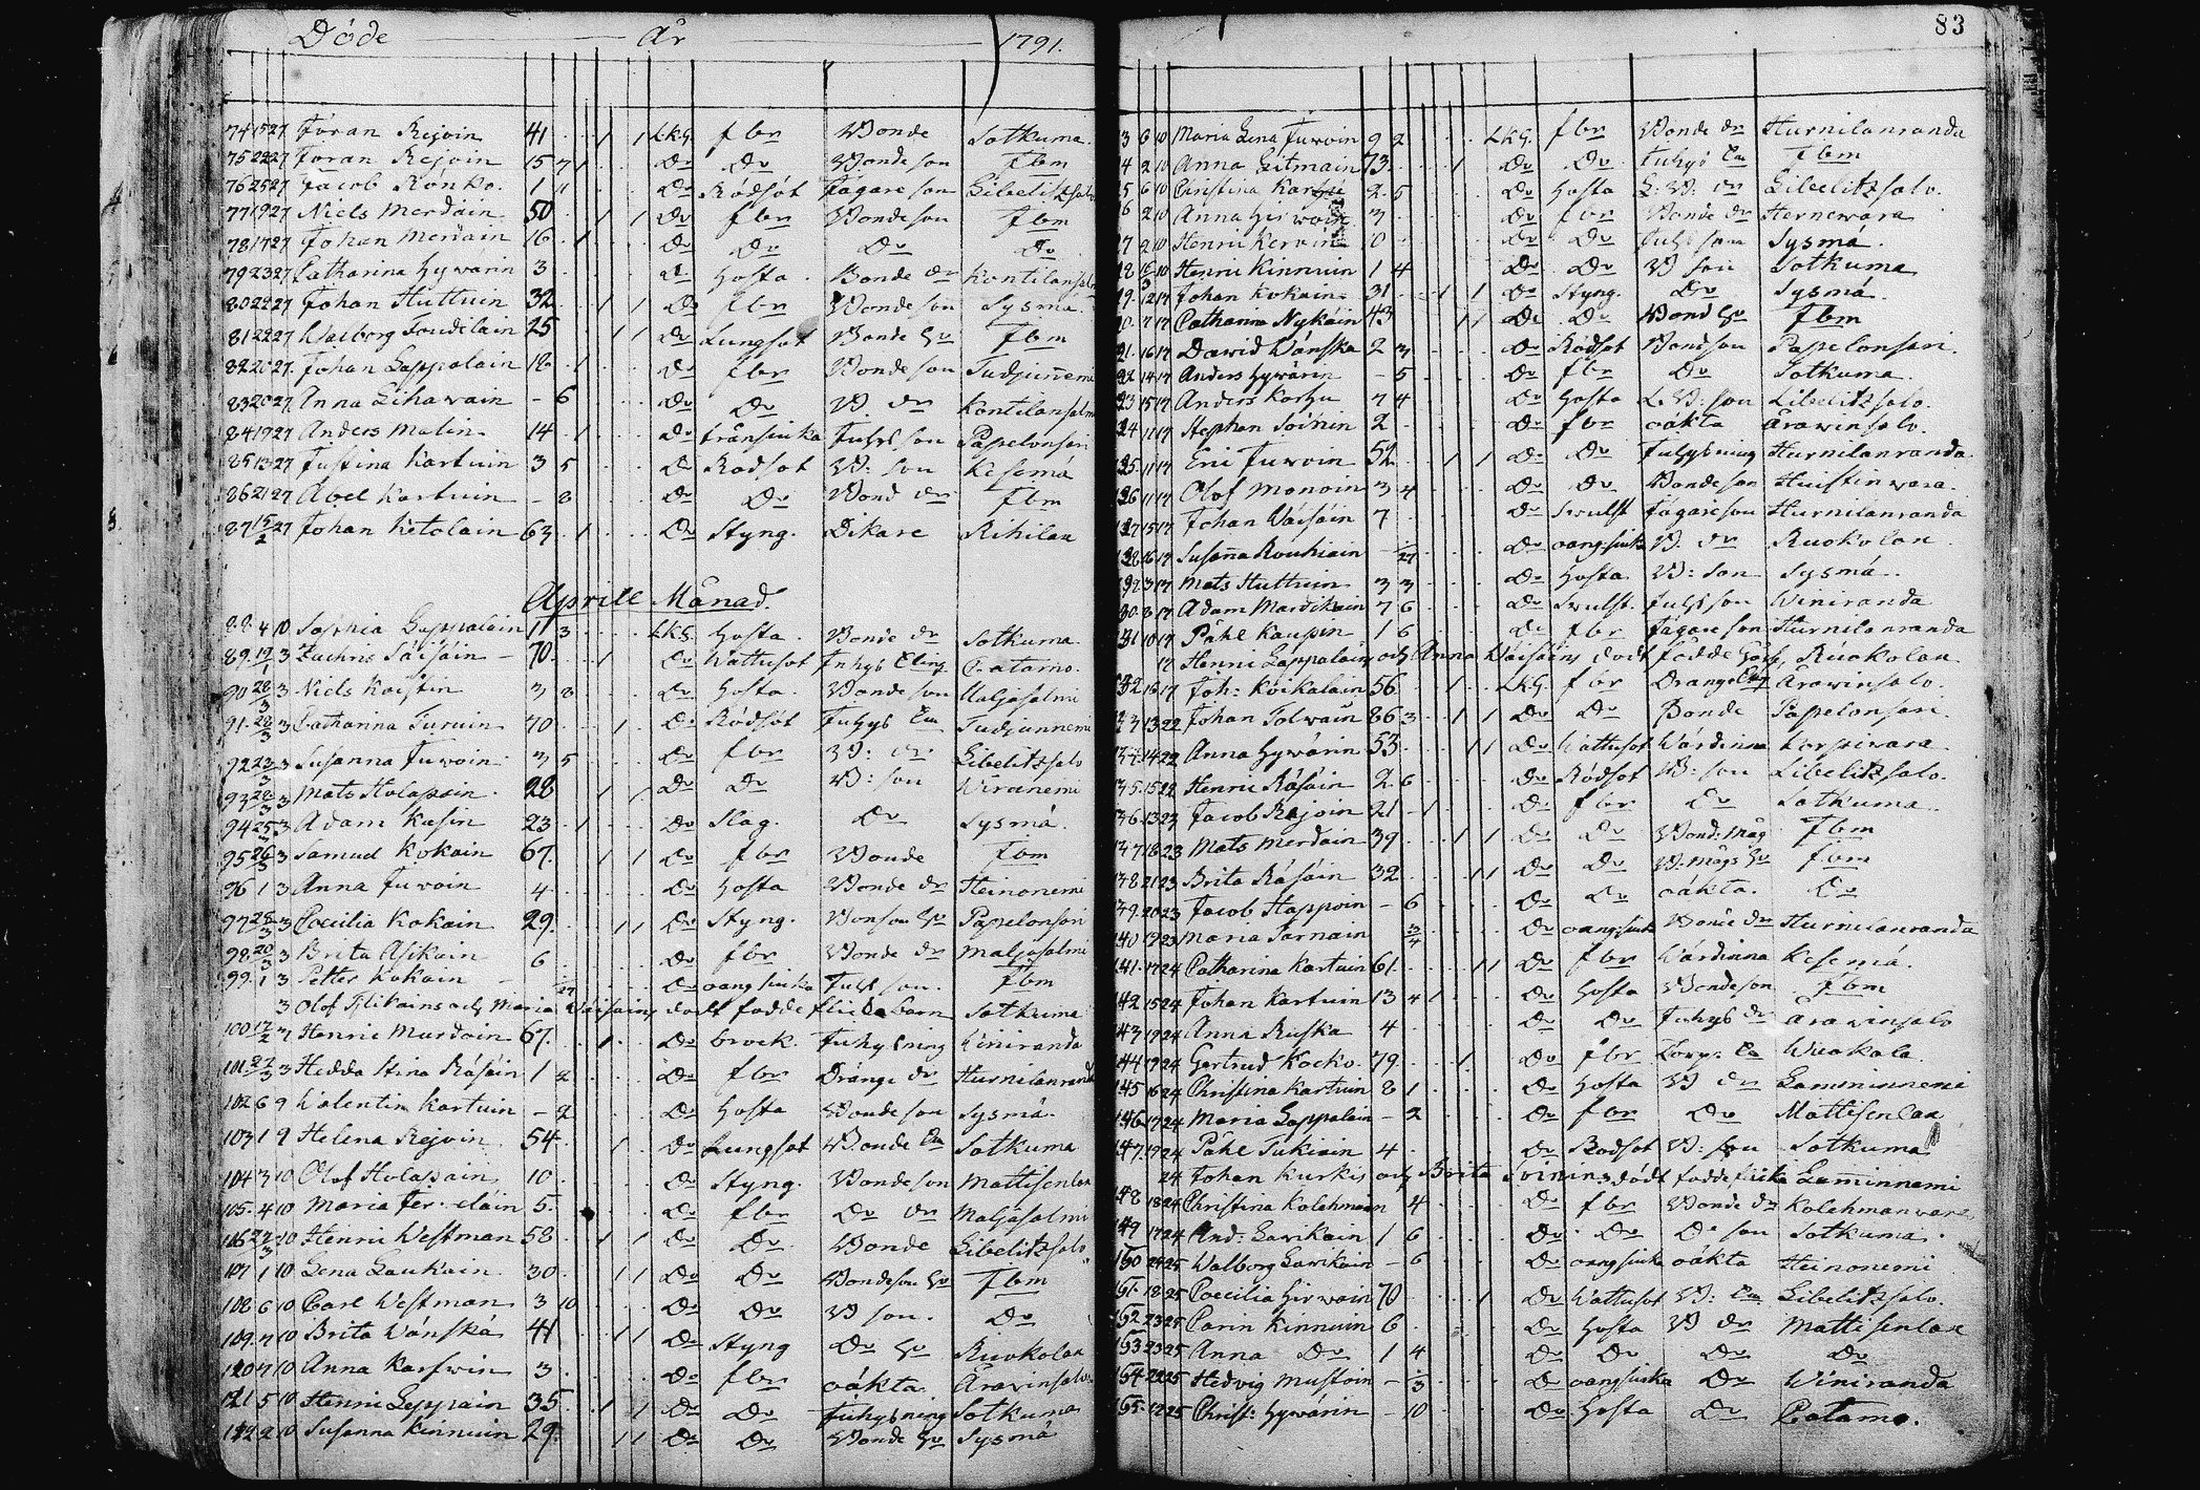 Döde År 1791.
74 15 27 Jöran Rejoin 41 1 1 L.K.G. fbr Bonde Sotkuma
75 22 27 Jöran Rejoin 15 7 1 Do Do Bonde son Ibm
76 25 27 Jacob Rönko. 1 11 Do Rödsöt Jägare son Libelitzsalo
77 19 27 Niels Merdäin 50 1 1 Do fbr Bonde son Ibm
78 17 27 Johan Merdäin 16 1 Do Do Do Do
79 23 27 Catharina Hywärin 3 Do Hosta Bonde dr Kontilansalmi
80 22 27 Johan Huttuin 32 1 1 Do fbr Bonde son Sysmä.
81 22 27 Walborg Toudilain 25 1 1 Do Lungsot Bonde Hu Ibm
82 20 27 Johan Lappalain 18 1 Do fbr Bonde son Tudjunnemi
83 20 27 Anna Lihawain - 6 Do Do B. dr Kontilansalmi
84 19 27 Anders Malin 14 1 Do tränsiuka Juhys son Papelonsari
85 13 27 Justina Kartuin 3 5 Do Rödsot B: son Kesemä
86 21 27 Abel Kartuin - 8 Do Do Bond dr Ibm
87 15/2 27 Johan Ketolain 63 1 Do Styng. Dikare Rihilax
Aprill Månad.
88 4 10 Sophia Lappalain 11 3 L.K.G. Hosta Bonde dr Sotkuma
89 19/1 3 Zachris Säisäin - 70 1 Do Wattusot Inhys Eling Catamo.
90 28/3 3 Niels Koistin 3 8 Do Hosta Bonde son Maljasalmi
91 28/3 3 Catharina Turuin 40 1 Do Rödsöt Juhys Ea Tudjunnemi
92 23/3 3 Susanna Juwoin 3 5 Do fbr B: dr Libelitzsalo
93 28/3 3 Mats Holapain 28 1 1 Do Do B: son Wiranemi
94 25/3 3 Adam Kusin 23 1 Do Slag. Do Sysmä.
95 26/3 3 Samuel Kokain 67. 1 1 Do fbr Bonde Ibm
96 1 3 Anna Juwoin 4 Do Hosta Bonde dr Heinonemi
97 28/3 3 Cecilia Kokain 29. 1 1 Do Styng. Bonson Hu Papelonsari
98 20/3 3 Brita Asikain 6 Do fbr Bonde dr Maljasalmi
99 1 3 Petter Kokain - Do oang siuka Juhs son. Ibm
3 Olof Pilikains och Maria Wäisäins dödt födde flicke barn Sotkuma
100 17/2 3 Henric Murdoin 67. 1 Do brock. Juhysning Winiranda
101 27/3 3 Hedda Stina Räsäin 1 2 Do fbr Dränge dr Hurnilanranda
102 6 9 Walentin Kartuin - 2 Do Hosta Bonde son Sysmä
103 1 9 Helena Rejoin 54 1 Do Lungsot Bonde Ea Sotkuma
104 3 10 Olof Holapain 10 Do Styng. Bonde son Mattisenlax
105 4 10 Maria Ter eläin 5. Do fbr Do dr Maljasalmi
106 27/3 10 Henric Westman 58 1 1 Do Do Bonde Libelitzsalo
107 1 10 Lena Laukain 30 1 1 Do Do Bondeson Hu Ibm
108 6 10 Carl Westman 3 10 Do Do B son. Do
109 7 10 Brita Wänskä 41 1 1 Do Styng Do Hu Ruokolax
120 7 10 Anna Karfwin 3 Do fbr oäkta Arawinsalo
121 5 10 Henric Leppäin 35 1 1 Do Do Juhysning Sotkuma
122 2 10 Susanna Kinnuin 29 1 1 Do Do Bonde Hu Sysmä
83
3 6 10 Maria Lena Juwoin 9 2 L.K.G. fbr Bonde dr Hurnilanranda
4 2 10 Anna Litmain 73. 1 Do Do Juhys Ea Ibm
5 6 10 Christina Karhu 2 5 Do Hosta L: B. dr Libelitzsalo.
6 2 10 Anna Hirwoin 3 Do fbr Bonde dr Hernewara
7 2 10 Henric Kerwin 10 Do Do Juhs son Sysmä.
8 10 Henric Kinnuin 1 4 Do Do B son Sotkuma
9 12 17 Johan Kokain 31 1 1 Do Styng. Do Sysmä.
7 17 Catharina Nykäin 43 1 1 Do Do Bond Hu Ibm
21 16 17 Dawid Wänska 2 3 Do Rödsot Bondson Papelonsari.
22 14 17 Anders Hywärin - 5 Do fbr Do Sotkuma.
23 15 17 Anders Karhu 7 4 Do Hosta L. B: son Libelitzsalo.
24 11 17 Stephan Soinin 2 Do fbr oäkta Arawinsalo.
125 11 17 Eric Juwoin 52 1 1 Do Do Juhysning Hurnilanranda
126 11 17 Olof Monoin 3 4 Do Do Bondeson Huistinwara.
127 15 17 Johan Wäisäin 7 Do Swulst Jägareson Hurnilanranda
128 16 17 Susanna Rouhiain - Do oangsiuka B. dr Ruokolax
129 3 17 Mats Huttuin 3 3 Do Hosta B: son Sysmä.
130 8 17 Adam Mardikain 7 6 Do Swulst. Juhs son Winiranda
131 10 17 Påhl Kaupin 1 6 Do fbr Jägare son Hurnilanranda
17 Henric Lappalains och Anna Wäisäins dödt födde Gosse, Ruokolax
132 16 17 Joh: Koikalain 56 1 L.K.G. fbr Arawinsalo.
133 13 22 Johan Tolwain 86 3 1 1 Do Do Bonde Papelonsari.
134 14 22 Anna Hywärin 53 1 1 Do Wattusot Wärdinna Korpiwara
135 15 22 Henric Räsäin 2 6 Do Rödsot B: son Libelitzsalo.
136 13 23 Jacob Rejoin 21 1 Do fbr Do Sotkuma.
137 18 23 Mats Merdain 39 1 1 Do Do Bond: Måg Ibm
138 21 23 Brita Räsäin 32 1 1 Do Do B. mågs Hu Ibm
139 20 23 Jacob Happoin - 6 Do Do oäkta. Do
140 19 23 Maria Parnain 3/4 Do oangsiuk Bonde dr Hurnilanranda
141 17 24 Catharina Kartuin 61. 1 1 Do fbr Wärdinna Kesemä.
142 15 24 Johan Kartuin 13 4 1 Do Hosta Bondeson Ibm
143 19 24 Anna Ruska 4 Do Do Juhys dr Arawinsalo
144 19 24 Gertrud Kocko 79. 1 Do fbr Ea Wuokala
145 16 24 Christina Kartuin 8 1 Do Hosta B dr Laminnemi
146 17 24 Maria Lappalain - 2 Do fbr Do Mattisenlax
147 19 24 Påhl Tukiain 4 Do Rodsot B: son Sotkuma
24 Johan Kurkis och Brita Soinins dödt födde flicka Laminnemi
148 18 24 Christina Kolehmain 4 Do fbr Bonde dr Kolehmanwara
149 17 24 And: Sarikain 1 6 Do Do Do son Sotkuma.
150 24 25 Walborg Sarikain - 6 Do oangsiuka oäkta Heinonemi
151 18 25 Coecilia Hirwoin 70 1 Do Wattusot B: Ea Libelitzsalo.
152 23 25 Carin Kinnuin 6 Do Hosta B dr Mattisenlax
153 23 25 Anna Do 1 4 Do Do Do Do
154 22 25 Hedvig Mustoin - 1/3 Do oangsiuka Do Winiranda
155 12 25 Christ: Hywärin - 10 Do Hosta Do Catamo.